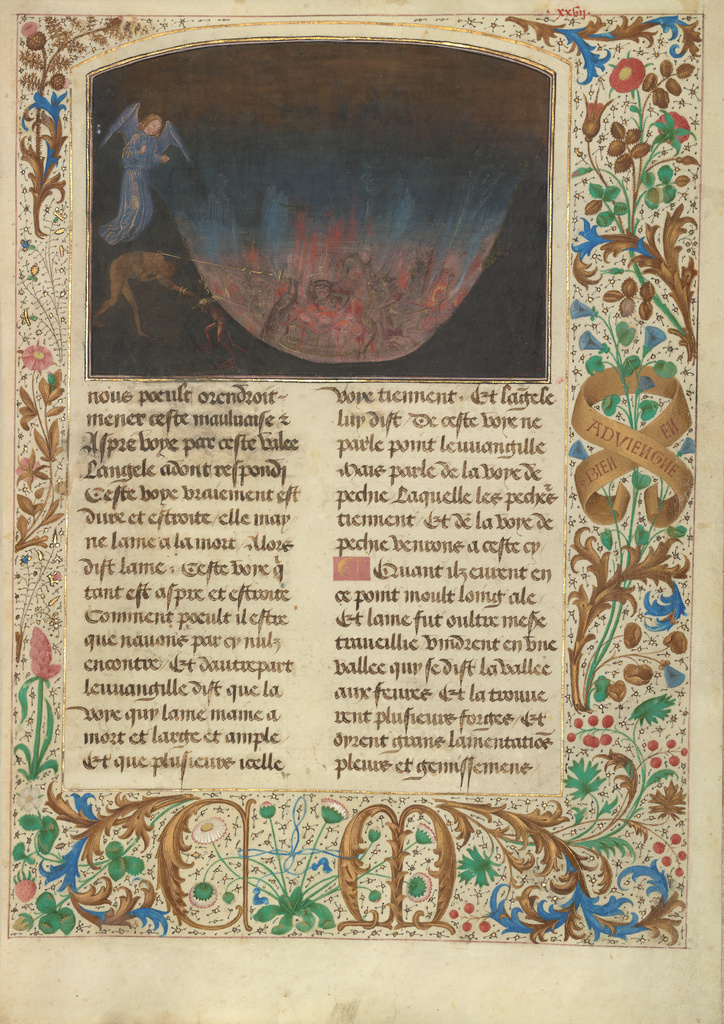 xxvij.
nous poeult orendroit
mener ceste mauluaise &
Aspre voye par ceste valee
Langele adont respondi
Ceste voye vraiement est
dure et estroite / elle maỹ
ne lame a la mort Alors
dist lame / Ceste voye q̃
tant est aspre et estroite
Comment poeult il estre
que nauons par cy nulz
encontre / Et dautrepart
leuuangille dist que la
voye quy lame maine a
mort et large et ample
Et que plusieurs icelle
voye tiennent . Et lãgele
luy dist De ceste voye ne
parle point leuuangille
Mais parle de la voye de
pechie Laquelle les pechẽs
tiennent / Et de la voye de
pechie venrons a ceste cy
Quant ilz eurent en
ce point moult loing ale
Et lame fut oultre mesẽ
traueillie vindrent en vne
vallee quy se dist la vallee
aux feures Et la trouue
rent plusieurs forges / Et
oyrent grans lamentatiõs
pleurs et gemissemens
BIEN EN
ADVIENGNE
C M